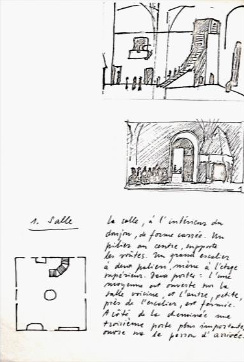 1. Salle
La salle, à l'intérieur du
donjon, de forme carrée. Un
pilier au centre, supporte
les voûtes. Un grand escalier
à deux paliers, mène à l'étage
supérieur. Deux portes : l'une
moyenne est ouverte sur la
salle voisine, et l'autre, petite,
près de l'escalier, est fermée.
A côté, de la cheminée une
troisième porte plus importante
ouvre sur le d'arrivée